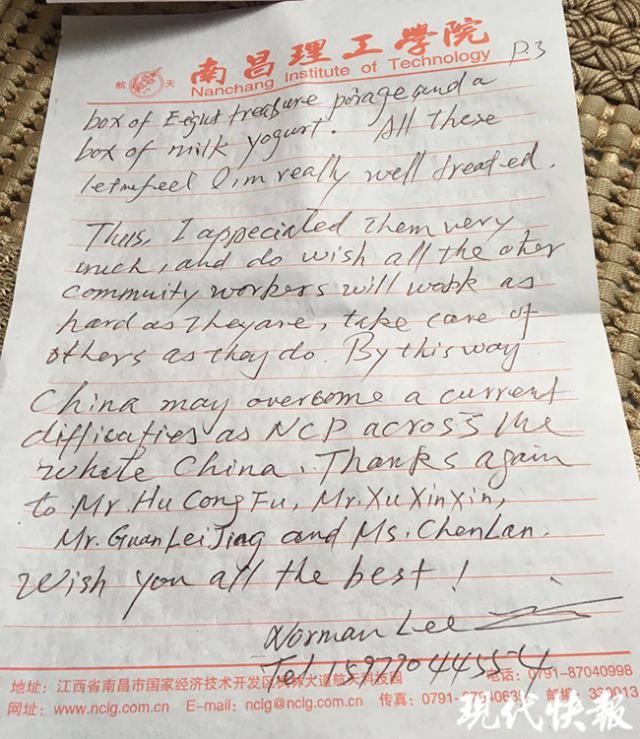 航天 南昌理工学院 P.3
Nanchang Institute of Technology
box of Eight treasure porage and a
box of milk yogurt. All these
let me feel I'm really well treated.
Thus, I appeciated them very
much, and do wish all the oher
commuity workers will work as
hard as they are, take care of
others as they do. By this way
China may overcome a current
difficaties as NCP across the
whole China. Thanks again
to Mr. Hu Cong Fu, Mr. Xu Xin Xin,
Mr. Guan Lei Jing and Ms. Chen Lan.
Wish you all the best!
Norman Lee
Tel
地址：江西省南昌市国家经济技术开发区 大道航天科技园 电话：0791-87040998
网址：www.nclg.com.cn E-mail：nclg@nclg.com.cn 传真：0791- 邮编：330013
现代快报